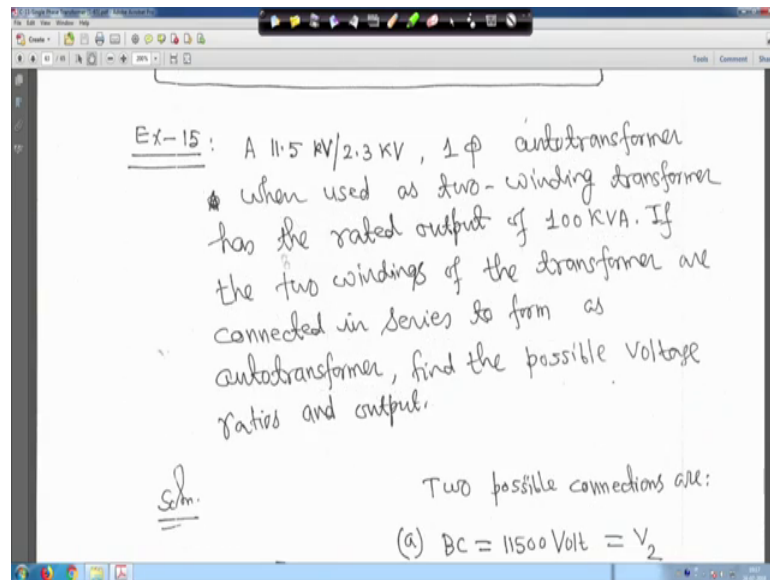 File Edit View Window Help
Create
Tools Comment
Ex-15 : A 11.5 kV/2.3 KV, 1 φ autotransformer
when used as two-winding transformer
has the rated output of 100 KVA. If
the two windings of the transformer are
connected in series to form as
autotransformer, find the possible voltage
ratios and output.
Soln.
Two possible connections are:
(a) BC = 11500 Volt = V2